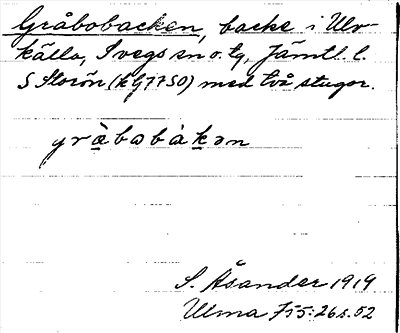 Gråbobacken, backe i Ulv-
källa, Svegs sn o. tg, Jämtl. l.
S Storön (k G7750) med två stugor.
gràbobàkən
S. Åsander 1919
Ulma 755:26 s. 52